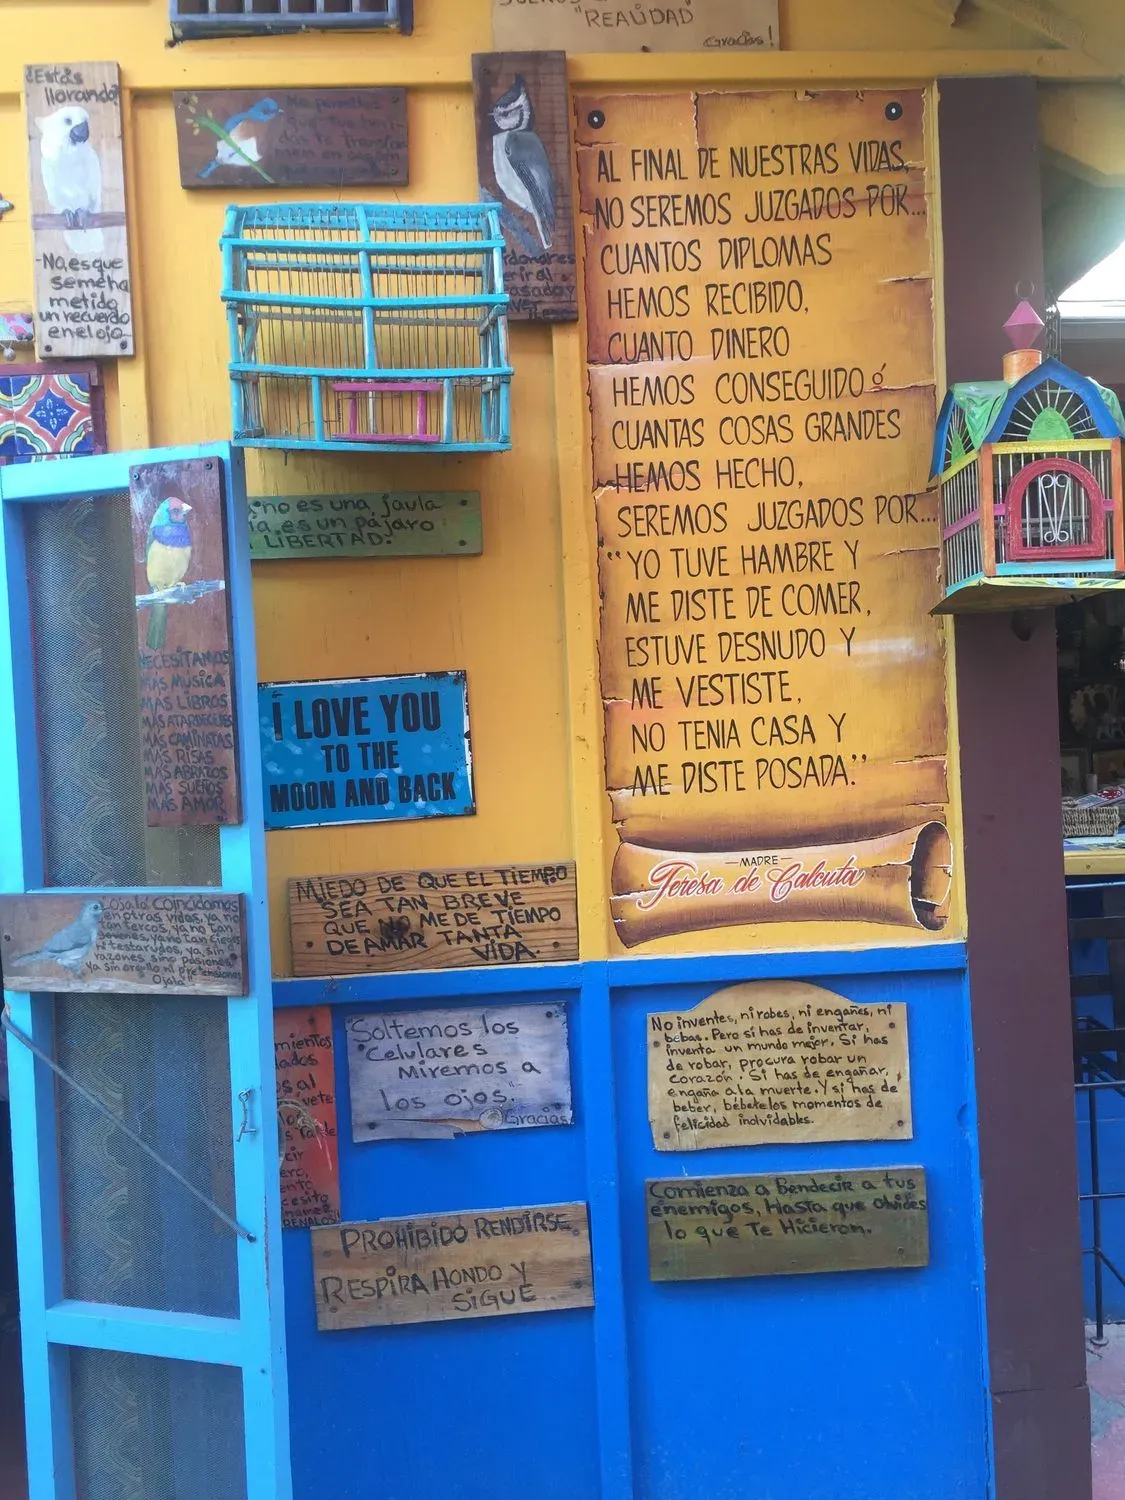 "REALIDAD"
Gracias!
¿Estás
llorando?
-No, es que
se me ha
metido
un recuerdo
en el ojo.
Me permites
que tus
AL FINAL DE NUESTRAS VIDAS,
NO SEREMOS JUZGADOS POR...
CUANTOS DIPLOMAS
HEMOS RECIBIDO,
CUANTO DINERO
HEMOS CONSEGUIDO ó
CUANTAS COSAS GRANDES
HEMOS HECHO,
SEREMOS JUZGADOS POR...
"YO TUVE HAMBRE Y
ME DISTE DE COMER,
ESTUVE DESNUDO Y
ME VESTISTE,
NO TENIA CASA Y
ME DISTE POSADA."
MADRE
Teresa de Calcuta
no es una jaula
es un pájaro
LIBERTAD.
NECESITAMOS
MÁS MUSICA
MÁS LIBROS
MÁS ATARDECERES
MÁS CAMINATAS
MÁS RISAS
MÁS ABRAZOS
MÁS SUEÑOS
MÁS AMOR
I LOVE YOU
TO THE
MOON AND BACK
MIEDO DE QUE EL TIEMPO
SEA TAN BREVE
QUE NO ME DE TIEMPO
DE AMAR TANTA
VIDA.
Ojalá Coincidamos
en otras vidas, ya no
tan tercos, ya no tan
jovenes, ya no tan ciegos
ni testarudos, ya sin
razones sino pasiones
ya sin orgullo ni pretensiones
Ojalá"
Soltemos los
Celulares
Miremos a
los ojos."
Gracias.
No inventes, ni robes, ni engañes, ni
bebas. Pero si has de inventar,
inventa un mundo mejor. Si has
de robar, procura robar un
corazón. Si has de engañar,
engaña a la muerte. Y si has de
beber, bébete los momentos de
felicidad inolvidables.
Comienza a Bendecir a tus
enemigos, Hasta que olvides
lo que Te Hicieron.
PROHIBIDO RENDIRSE
RESPIRA HONDO Y
SIGUE